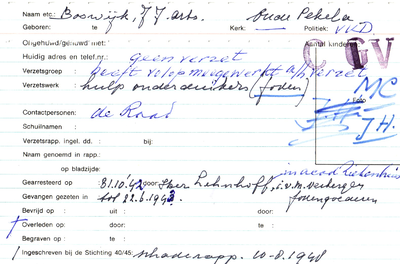 Naam etc: Boswijk, J J arts. Oude Pekela
Geboren: te Kerk: Politiek: VKD.
Ongehuwd/gehuwd met: Aantal kinderen:
Huidig adres en telef.nr.: geen verzet
C GV
Verzetsgroep : heeft volop meegewerkt a/h verzet
Verzetswerk : hulp onderduikers (Joden)
MC
Contactpersonen: de Raad
J H.
Schuilnaam :
Verzetsrapp. ingel. dd. : bij:
Naam genoemd in rapp.:
op bladzijde:
Gearresteerd op : 31.10.42 door: Lehnhoff, i.v.m. verbergen
Gevangen gezeten in : tot 22.6.1943. Jodengoederen
Bevrijd op : uit : door:
Overleden op: : te : door:
Begraven op : te :
Ingeschreven bij de Stichting 40/45: schaderapp. 10-8.1948